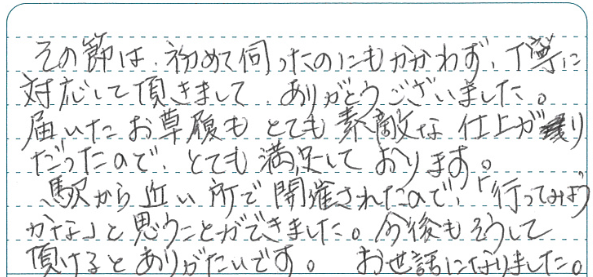 その節は、初めて伺ったのにもかかわず、丁寧に
対応して頂きまして、ありがとうございました。
届いたお草履もとても素敵な仕上がり
だったので、とても満足しております。
駅から近い所で開催されたので、「行ってみよう
かな」と思うことができました。今後もそうして
頂けるとありがたいです。 お世話になりました。